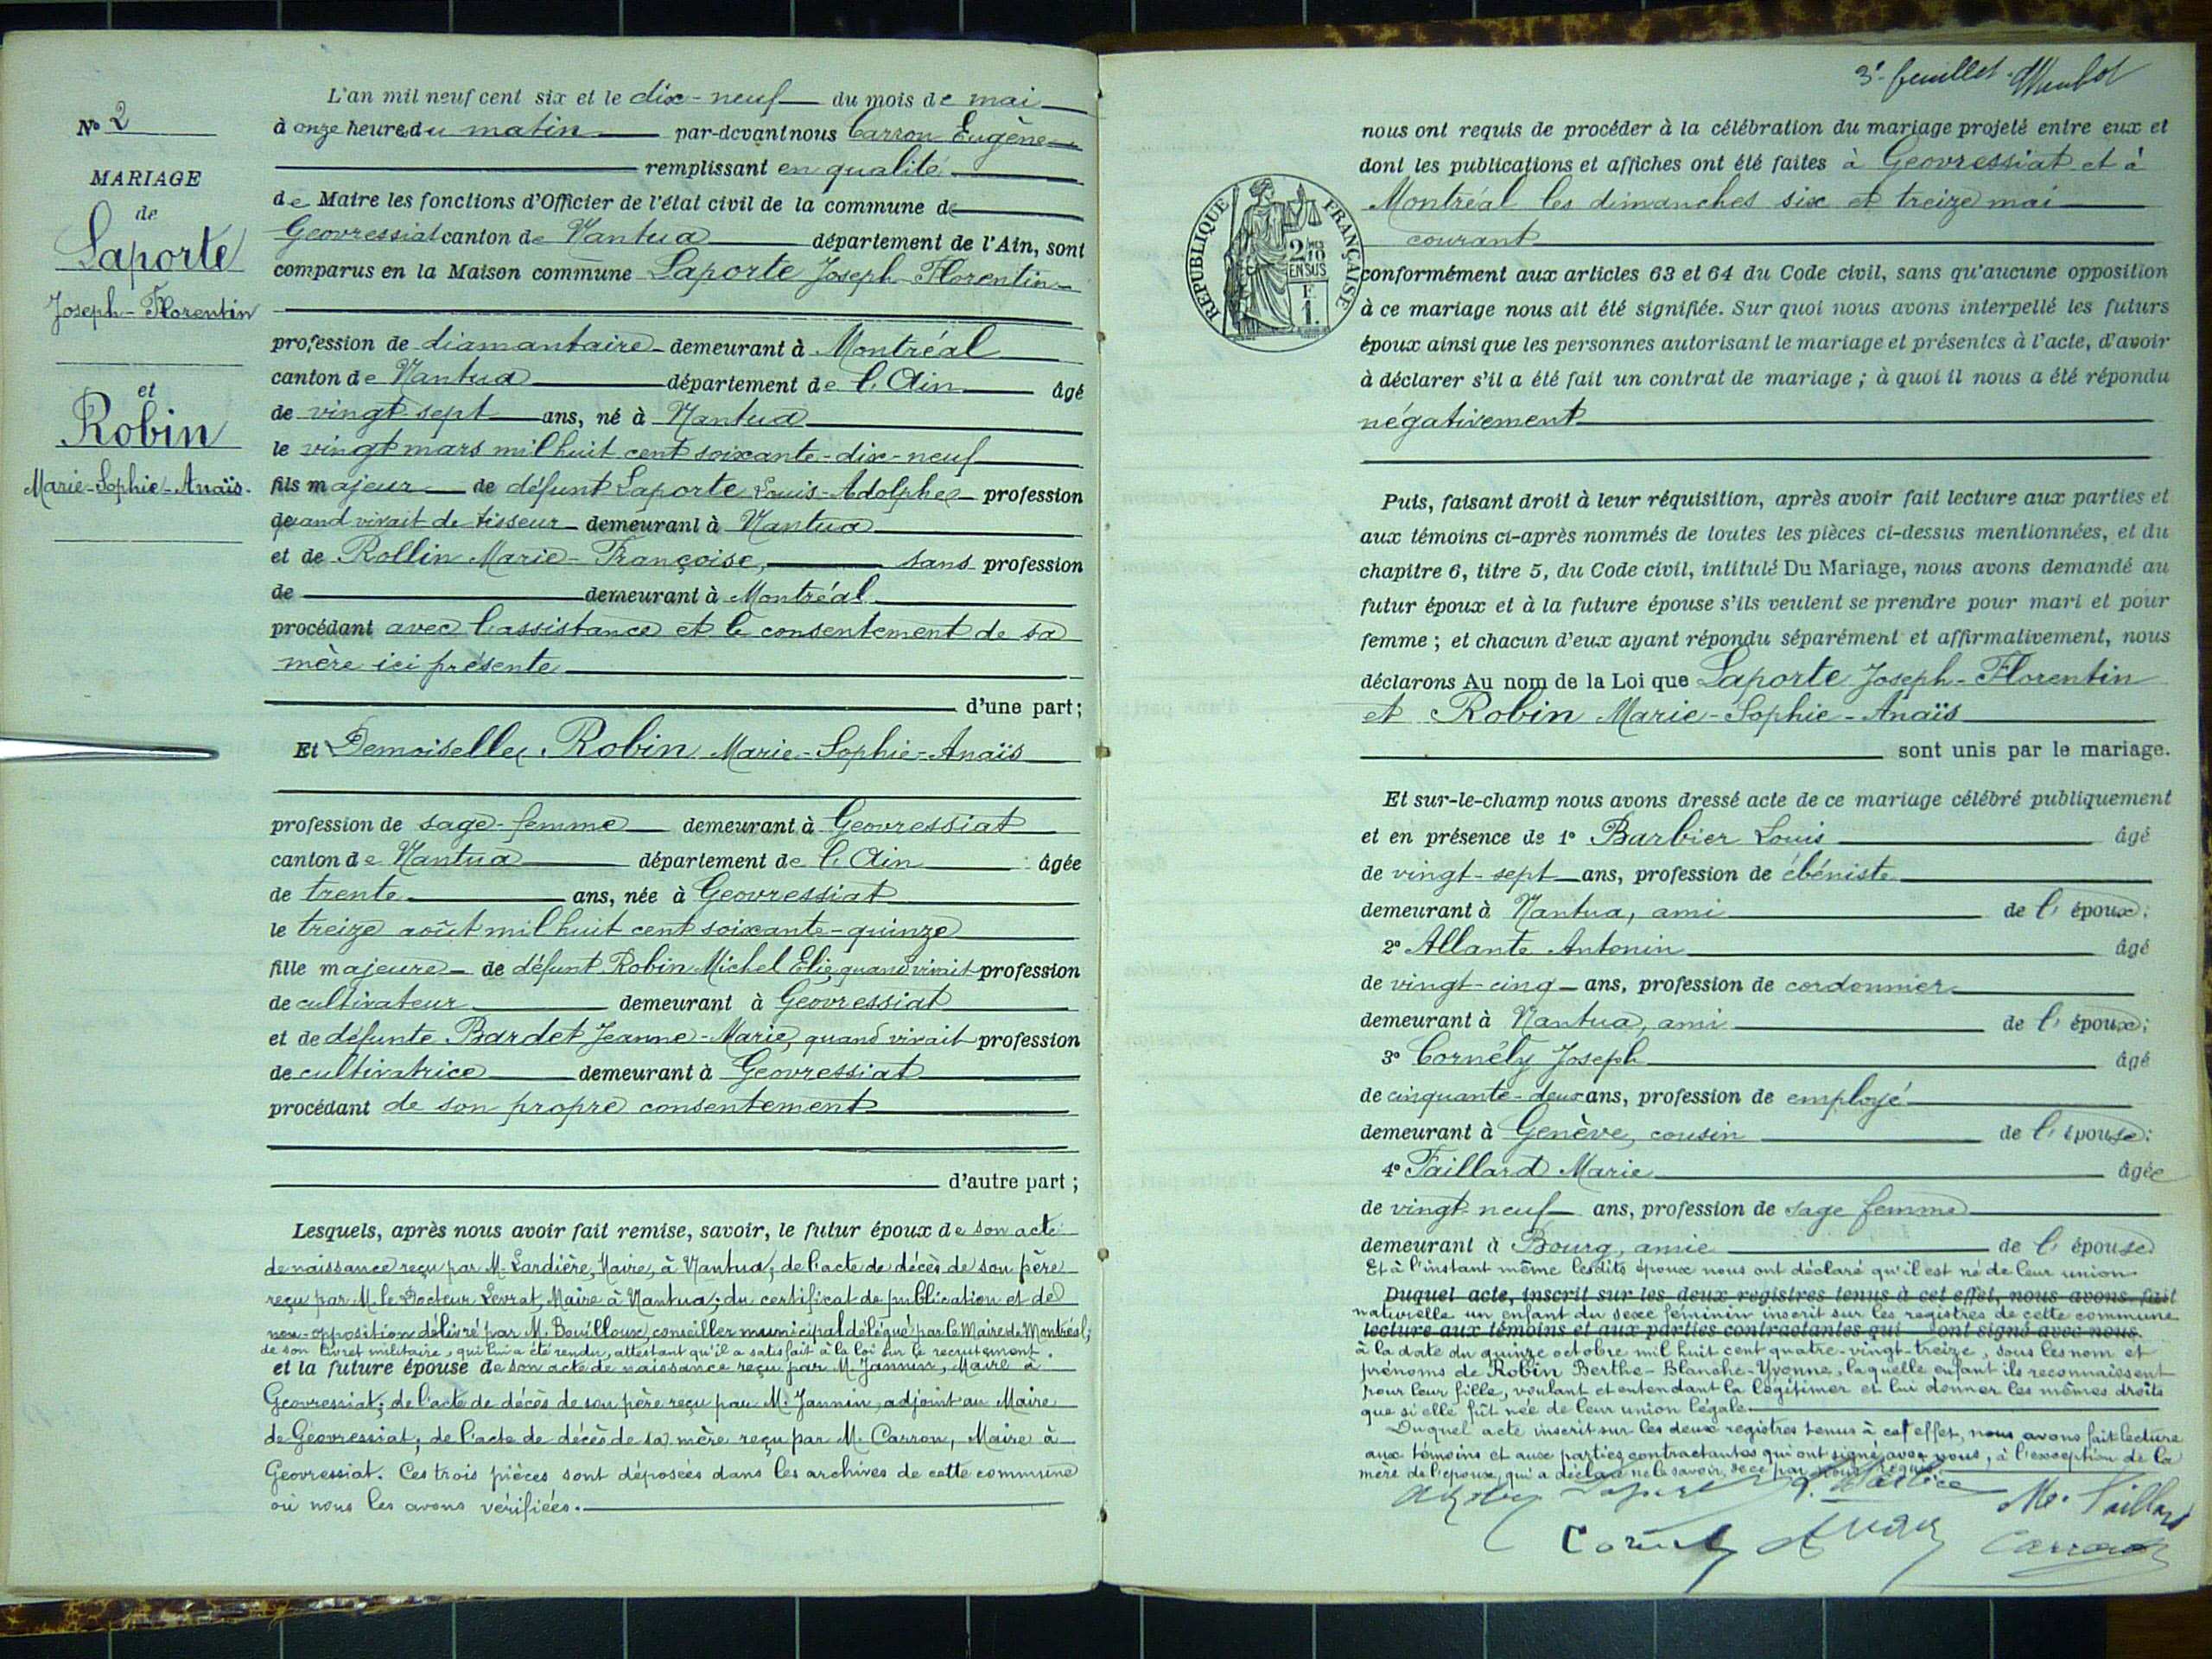 N° 2
MARIAGE
de
Laporte
Joseph-Florentin
et
Robin
Marie-Sophie-Anaïs.
L'an mil neuf cent six et le dix-neuf du mois de mai
à onze heures du matin par-devant nous Carron Eugène
remplissant en qualité
de Maire les fonctions d'Officier de l'état civil de la commune de
Geovressiat canton de Nantua département de l'Ain, sont
comparus en la Maison commune Laporte Joseph-Florentin
profession de diamantaire demeurant à Montréal
canton de Nantua département de l'Ain âgé
de vingt sept ans, né à Nantua
le vingt mars mil huit cent soixante-dix-neuf
fils majeur de défunt Laporte Louis-Adolphe profession
quand vivait de tisseur demeurant à Nantua
et de Rollin Marie-Françoise, sans profession
de demeurant à Montréal
procédant avec l'assistance et le consentement de sa
mère ici présente
d'une part;
Et Demoiselle Robin Marie-Sophie-Anaïs
profession de sage-femme demeurant à Geovressiat
canton de Nantua département de l'Ain âgée
de trente ans, née à Geovressiat
le treize août mil huit cent soixante-quinze
fille majeure de défunt Robin Michel Elie, quand vivait profession
de cultivateur demeurant à Géovressiat
et de défunte Bardet Jeanne-Marie, quand vivait profession
de cultivatrice demeurant à Geovressiat
procédant de son propre consentement
d'autre part;
Lesquels, après nous avoir fait remise, savoir, le futur époux de son acte
de naissance reçu par M. Lardière, Maire, à Nantua; de l'acte de décès de son père
reçu par M. le Docteur Levrat, Maire à Nantua; du certificat de publication et de
non-opposition délivré par M. Bouilloux, conseiller municipal délégué par le Maire de Montréal;
de son livret militaire, qui lui a été rendu, attestant qu'il a satisfait à la loi sur le recrutement.
et la future épouse de son acte de naissance reçu par M. Jannin, Maire à
Geovressiat; de l'acte de décès de son père reçu par M. Jannin, adjoint au Maire
de Géovressiat; de l'acte de décès de sa mère reçu par M. Carron, Maire à
Geovressiat. Ces trois pièces sont déposées dans les archives de cette commune
où nous les avons vérifiées.
3e feuillet
RÉPUBLIQUE FRANÇAISE
2/10 EN SUS
F
1.
nous ont requis de procéder à la célébration du mariage projeté entre eux et
dont les publications et affiches ont été faites à Geovressiat et à
Montréal les dimanches six et treize mai
courant
conformément aux articles 63 et 64 du Code civil, sans qu'aucune opposition
à ce mariage nous ait été signifiée. Sur quoi nous avons interpellé les futurs
époux ainsi que les personnes autorisant le mariage et présentes à l'acte, d'avoir
à déclarer s'il a été fait un contrat de mariage; à quoi il nous a été répondu
négativement
Puis, faisant droit à leur réquisition, après avoir fait lecture aux parties et
aux témoins ci-après nommés de toutes les pièces ci-dessus mentionnées, et du
chapitre 6, titre 5, du Code civil, intitulé Du Mariage, nous avons demandé au
futur époux et à la future épouse s'ils veulent se prendre pour mari et pour
femme; et chacun d'eux ayant répondu séparément et affirmativement, nous
déclarons Au nom de la Loi que Laporte Joseph-Florentin
et Robin Marie-Sophie-Anaïs
sont unis par le mariage.
Et sur-le-champ nous avons dressé acte de ce mariage célébré publiquement
et en présence de 1° Barbier Louis âgé
de vingt-sept ans, profession de ébéniste
demeurant à Nantua, ami de l'époux;
2° Allante Antonin âgé
de vingt-cinq ans, profession de cordonnier
demeurant à Nantua, ami de l'époux;
3° Cornély Joseph âgé
de cinquante-deux ans, profession de employé
demeurant à Genève, cousin de l'épouse;
4° Faillard Marie âgée
de vingt-neuf ans, profession de sage femme
demeurant à Bourg, amie de l'épouse
Et à l'instant même lesdits époux nous ont déclaré qu'il est né de leur union
Duquel acte, inscrit sur les deux registres tenus à cet effet, nous avons fait
naturelle un enfant du sexe féminin inscrit sur les registres de cette commune
lecture aux témoins et aux parties contractantes qui ont signé avec nous.
à la date du quinze octobre mil huit cent quatre-vingt-treize, sous les nom et
prénoms de Robin Berthe-Blanche-Yvonne, laquelle enfant ils reconnaissent
pour leur fille, voulant et entendant la légitimer et lui donner les mêmes droits
que si elle fût née de leur union légale.
Duquel acte inscrit sur les deux registres tenus à cet effet, nous avons fait lecture
aux témoins et aux parties contractantes qui ont signé avec nous, à l'exception de la
mère de l'époux, qui a déclaré ne le savoir, de ce par nous requis.
Laporte
M. Faillard
Cornély
Carron